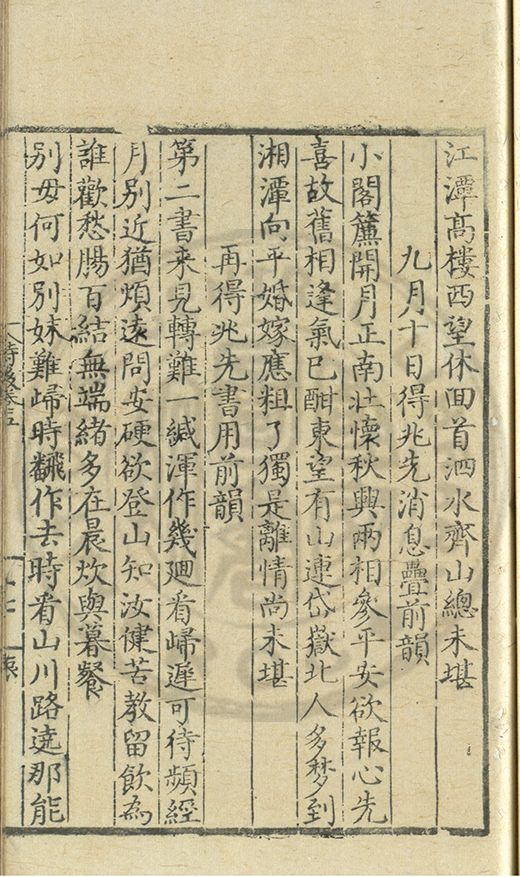 江潭高樓西望休回首泗水齊山總未堪
九月十日得兆先消息疊前韻
小閣簾開月正南壯懷秋興兩相參平安欲報心先
喜故舊相逢氣已酣東望有山連岱嶽北人多梦到
湘潭向平婚嫁應粗了獨是離情尚未堪
再得兆先書用前韻
第二書来見轉難一緘渾作幾迴看歸遲可待頻經
月別近猶煩遠問安硬欲登山知汝健苦教留飲為
誰歡愁腸百結無端緒多在晨炊與暮餐
別母何如別妹難歸時飜作去時看山川路遶那能